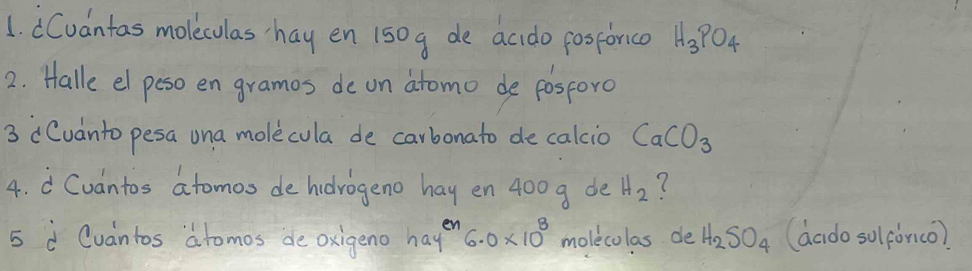 1. ¿Cuántas moléculas hay en 150g de ácido fosfórico H₃PO₄
2. Halle el peso en gramos de un átomo de fósforo
3 ¿Cuánto pesa una molécula de carbonato de calcio CaCO₃
4. ¿Cuántos átomos de hidrógeno hay en 400g de H₂?
5 ¿Cuántos átomos de oxígeno hay en 6.0×10⁸ moléculas de H₂SO₄ (ácido sulfúrico).